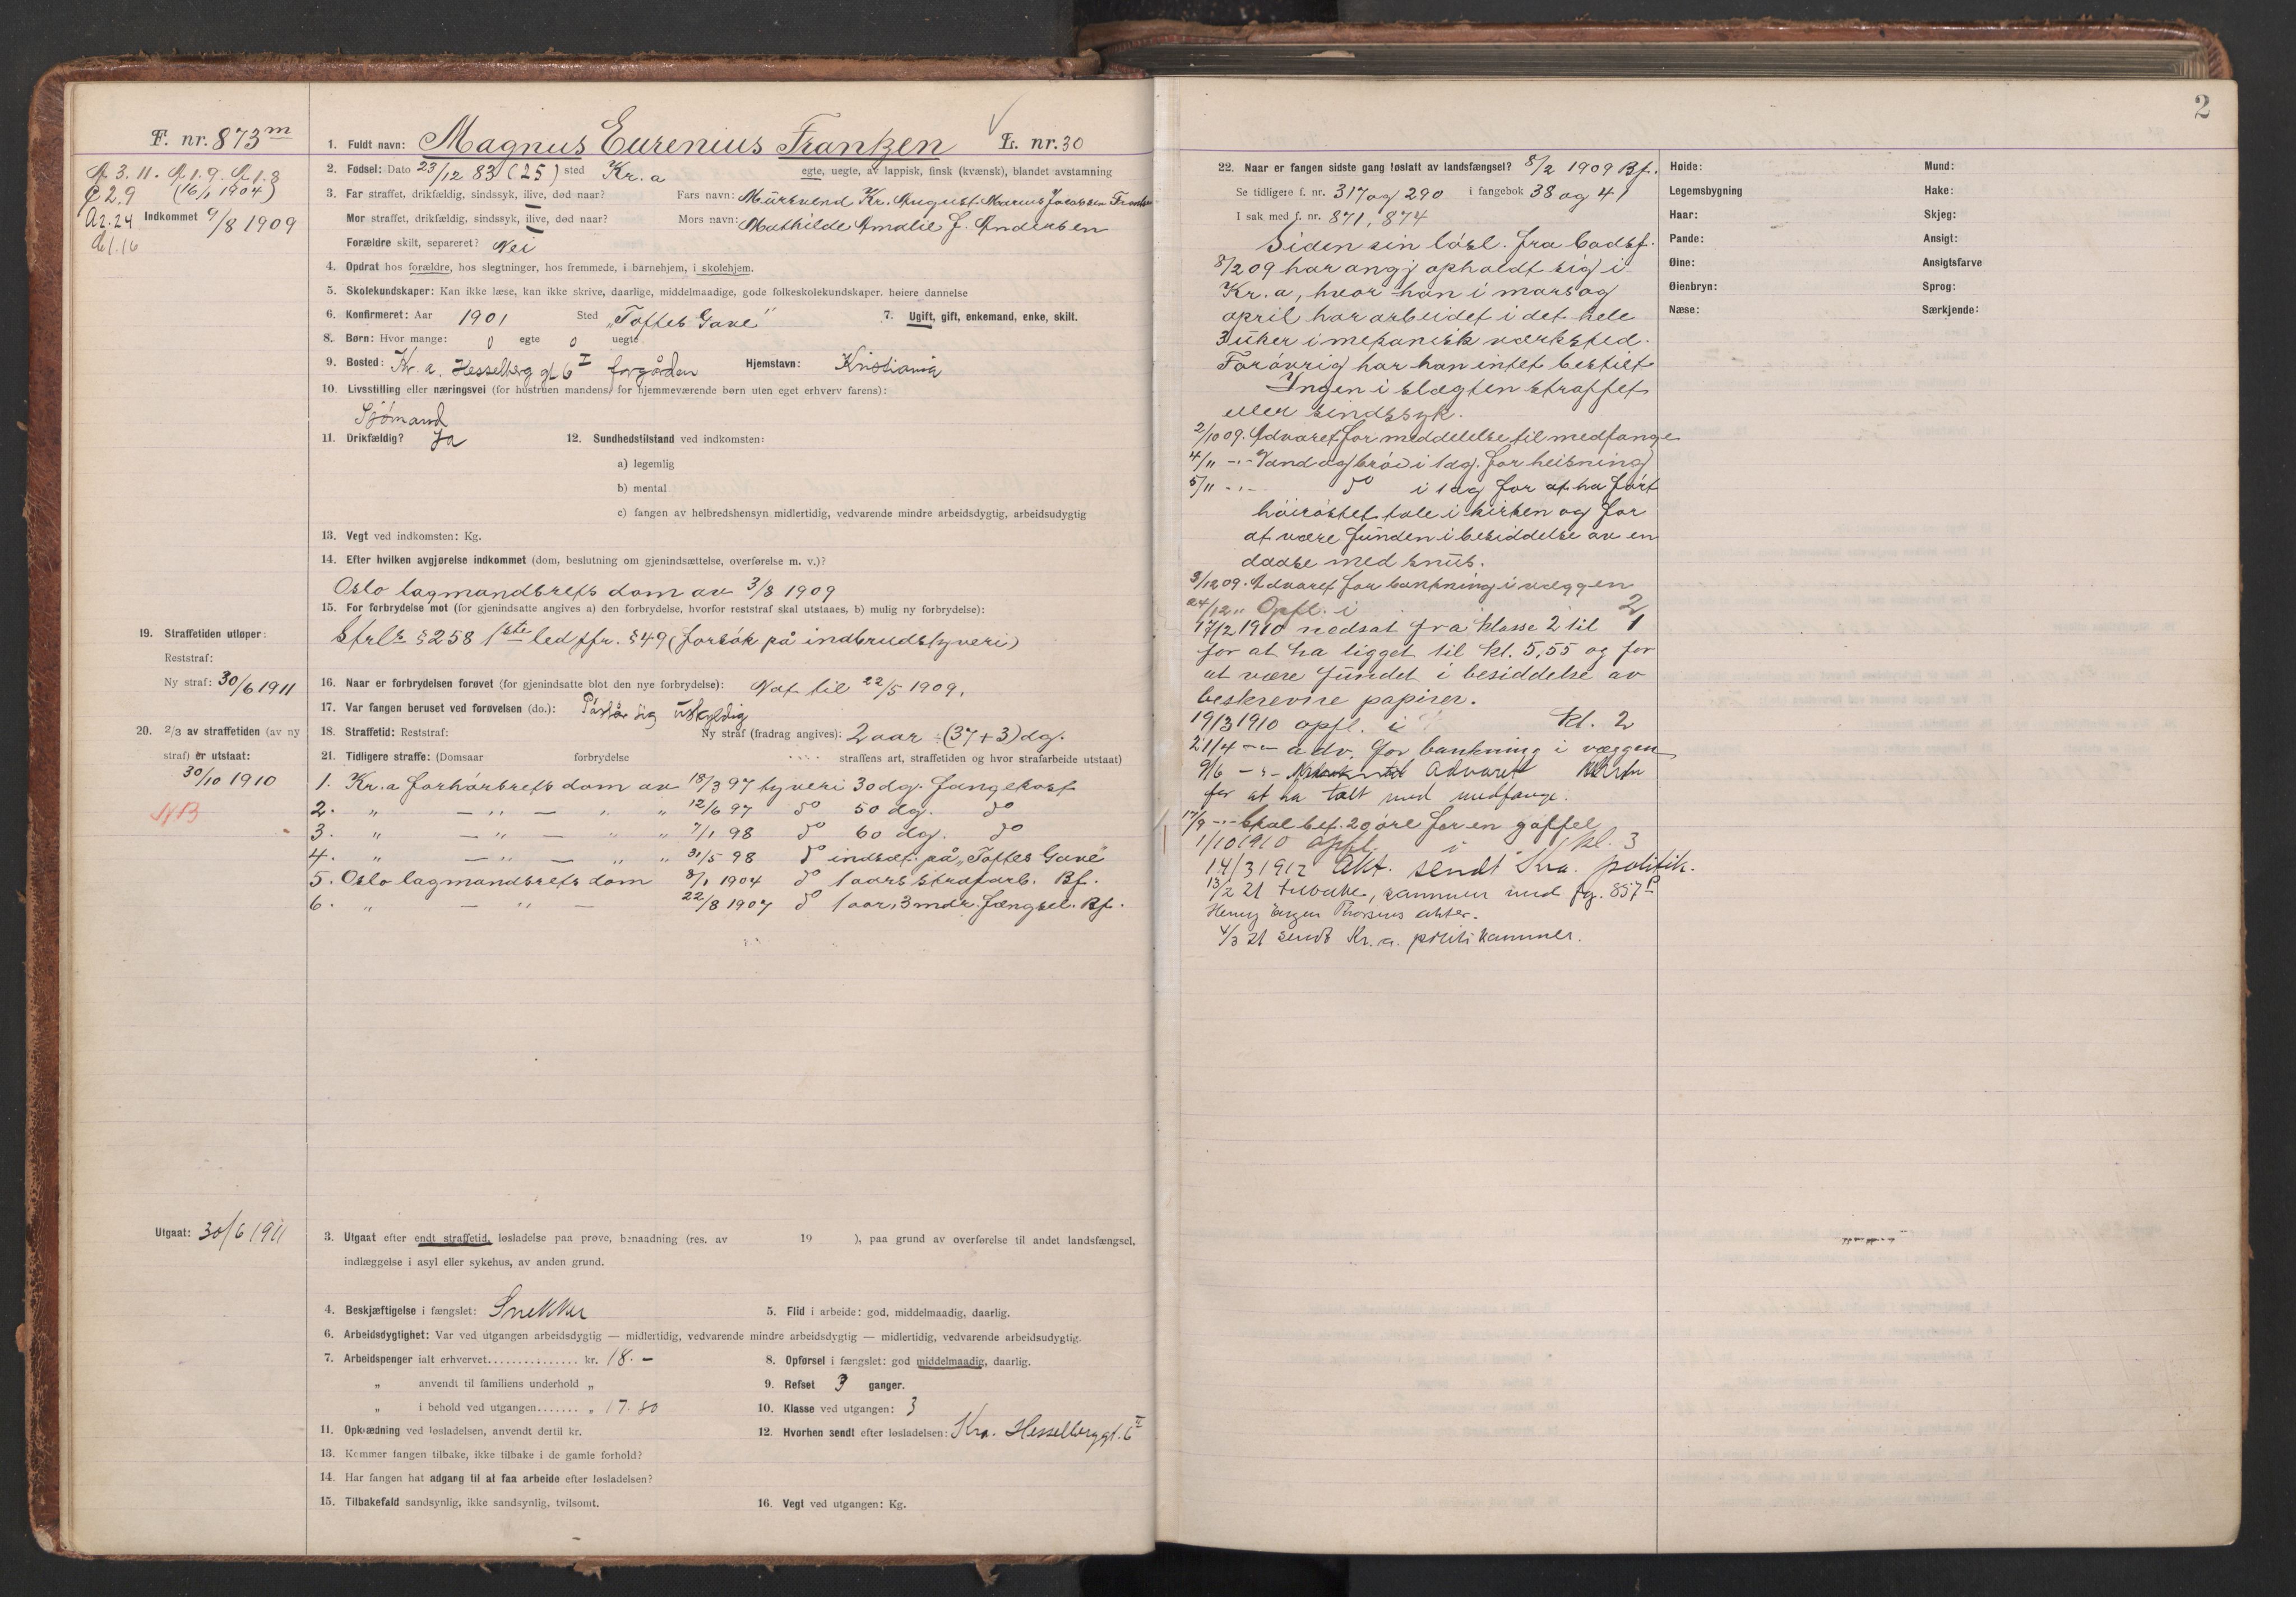 2
F. nr. 873 m
A 3. 11. A 1. 9. A 1. 8
C 2. 9 (16/1 1904)
A 2. 24 Indkommet 9/8 1909
A 1. 16
1. Fuldt navn: Magnus Eurenius Frantzen L. nr. 30
2. Fødsel: Dato 23/12 83 (25) sted Kr. a egte, uegte, av lappisk, finsk (kvænsk), blandet avstamning
3. Far straffet, drikfældig, sindssyk, ilive, død naar? Fars navn: Mürsvend Kr. August Marius Jacobsen
Mor straffet, drikfældig, sindssyk, ilive, død naar? Mors navn: Mathilde Amalie f. Andersen
Forældre skilt, separeret? Nei
4. Opdrat hos forældre, hos slegtninger, hos fremmede, i barnehjem, i skolehjem.
5. Skolekundskaper: Kan ikke læse, kan ikke skrive, daarlige, middelmaadige, gode folkeskolekundskaper. høiere dannelse
6. Konfirmeret: Aar 1901 Sted „Toftes Gave" 7. Ugift, gift, enkemand, enke, skilt.
8. Børn: Hvor mange: 0 egte 0 uegte
9. Bosted: Kr. a. Hesselberg gt 6 I forgården Hjemstavn: Kristiania
10. Livsstilling eller næringsvei (for hustruen mandens, for hjemmeværende børn uten eget erhverv farens):
Sjømand
11. Drikfældig? Ja 12. Sundhedstilstand ved indkomsten:
a) legemlig
b) mental
c) fangen av helbredshensyn midlertidig, vedvarende mindre arbeidsdygtig, arbeidsudygtig
13. Vegt ved indkomsten: Kg.
14. Efter hvilken avgjørelse indkommet (dom, beslutning om gjenindsættelse, overførelse m. v.)?
Oslo lagmandsrets dom av 3/8 1909
15. For forbrydelse mot (for gjenindsatte angives a) den forbrydelse, hvorfor reststraf skal utstaaes, b) mulig ny forbrydelse):
19. Straffetiden utløper: Strl § 258 1ste led jfr. § 49 (forsøk på indbrudstyveri)
Reststraf:
Ny straf: 30/6 1911 16. Naar er forbrydelsen forøvet (for gjenindsatte blot den nye forbrydelse): Nat til 22/5 1909.
17. Var fangen beruset ved forøvelsen (do.): Påstår sig uskyldig
20. 2/3 av straffetiden (av ny 18. Straffetid: Reststraf: Ny straf (fradrag angives): 2 aar ÷ (37+3) dg.
straf) er utstaat: 21. Tidligere straffe: (Domsaar forbrydelse straffens art, straffetiden og hvor strafarbeide utstaat)
30/10 1910 1. Kr.a forhørsrets dom av 18/3 97 tyveri 30 dg. fangekost
2. " — " — " " 12/6 97 do 50 dg. do
3. " — " — " " 7/1 98 do 60 dg. do
4. " — " — " " 31/5 98 do indsat på „Toftes Gave"
5. Oslo lagmandsrets dom 8/1 1904 do 1 aars strafarb. Bf.
6. " — " — 22/8 1907 do 1 aar, 3 mdr. fængsel. Bf.
Utgaat: 30/6 1911 3. Utgaat efter endt straffetid, løsladelse paa prøve, benaadning (res. av 19 ), paa grund av overførelse til andet landsfængsel,
indlæggelse i asyl eller sykehus, av anden grund.
4. Beskjæftigelse i fængslet: Snekker 5. Flid i arbeide: god, middelmaadig, daarlig.
6. Arbeidsdygtighet: Var ved utgangen arbeidsdygtig — midlertidig, vedvarende mindre arbeidsdygtig — midlertidig, vedvarende arbeidsudygtig.
7. Arbeidspenger ialt erhvervet............... kr. 18. – 8. Opførsel i fængslet: god middelmaadig, daarlig.
„ anvendt til familiens underhold „ 9. Refset 3 ganger.
„ i behold ved utgangen....... „ 17. 80 10. Klasse ved utgangen: 3
11. Opklædning ved løsladelsen, anvendt dertil kr. 12. Hvorhen sendt efter løsladelsen: Kra. Hesselberggt. 6 II
13. Kommer fangen tilbake, ikke tilbake i de gamle forhold?
14. Har fangen hat adgang til at faa arbeide efter løsladelsen?
15. Tilbakefald sandsynlig, ikke sandsynlig, tvilsomt. 16. Vegt ved utgangen: Kg.
22. Naar er fangen sidste gang løslatt av landsfængsel? 8/2 1909 Bf.
Se tidligere f. nr. 317 og 290 i fangebok 38 og 41
I sak med f. nr. 871, 874
Siden sin løsl. fra Bodsf.
8/2 09 har angj opholdt sig i
Kr. a, hvor han i mars og
april har arbeidet i det hele
3 uker i mekanisk værksted.
Forøvrig har han intet bestilt
Ingen i slægten straffet
eller sindssyk.
2/10 09. Advaret for meddelelse til medfange
4/11 -"- Vand og brød i 1 dg. for heisning
5/11 -"- do i 1 dg for at ha ført
høirøstet tale i kirken og for
at være funden i besiddelse av en
daase med snus.
3/12 09. Advaret for bankning i væggen
24/12 „ Opfl. i 2
17/2 1910 nedsat fra klasse 2 til 1
for at ha ligget til kl. 5,55 og for
at være fundet i besiddelse av
beskrevne papirer.
19/3 1910 opfl. i kl. 2
21/4 -"- adv. for bankning i væggen
9/6 -"- Advaret
for at ha talt med medfange.
17/9 -"- Skal bet. 20 øre for en gaffel
1/10 1910 opfl. i kl. 3
14/3 1912 Akt. sendt Kra. politik.
13/2 21 tilbake, sammen med fg. 857 P
Henry Thorsens akter.
4/3 21 sendt Kr. a. politikammer.
Høide: Mund:
Legemsbygning Hake:
Haar: Skjeg:
Pande: Ansigt:
Øine: Ansigtsfarve
Øienbryn: Sprog:
Næse: Særkjende: